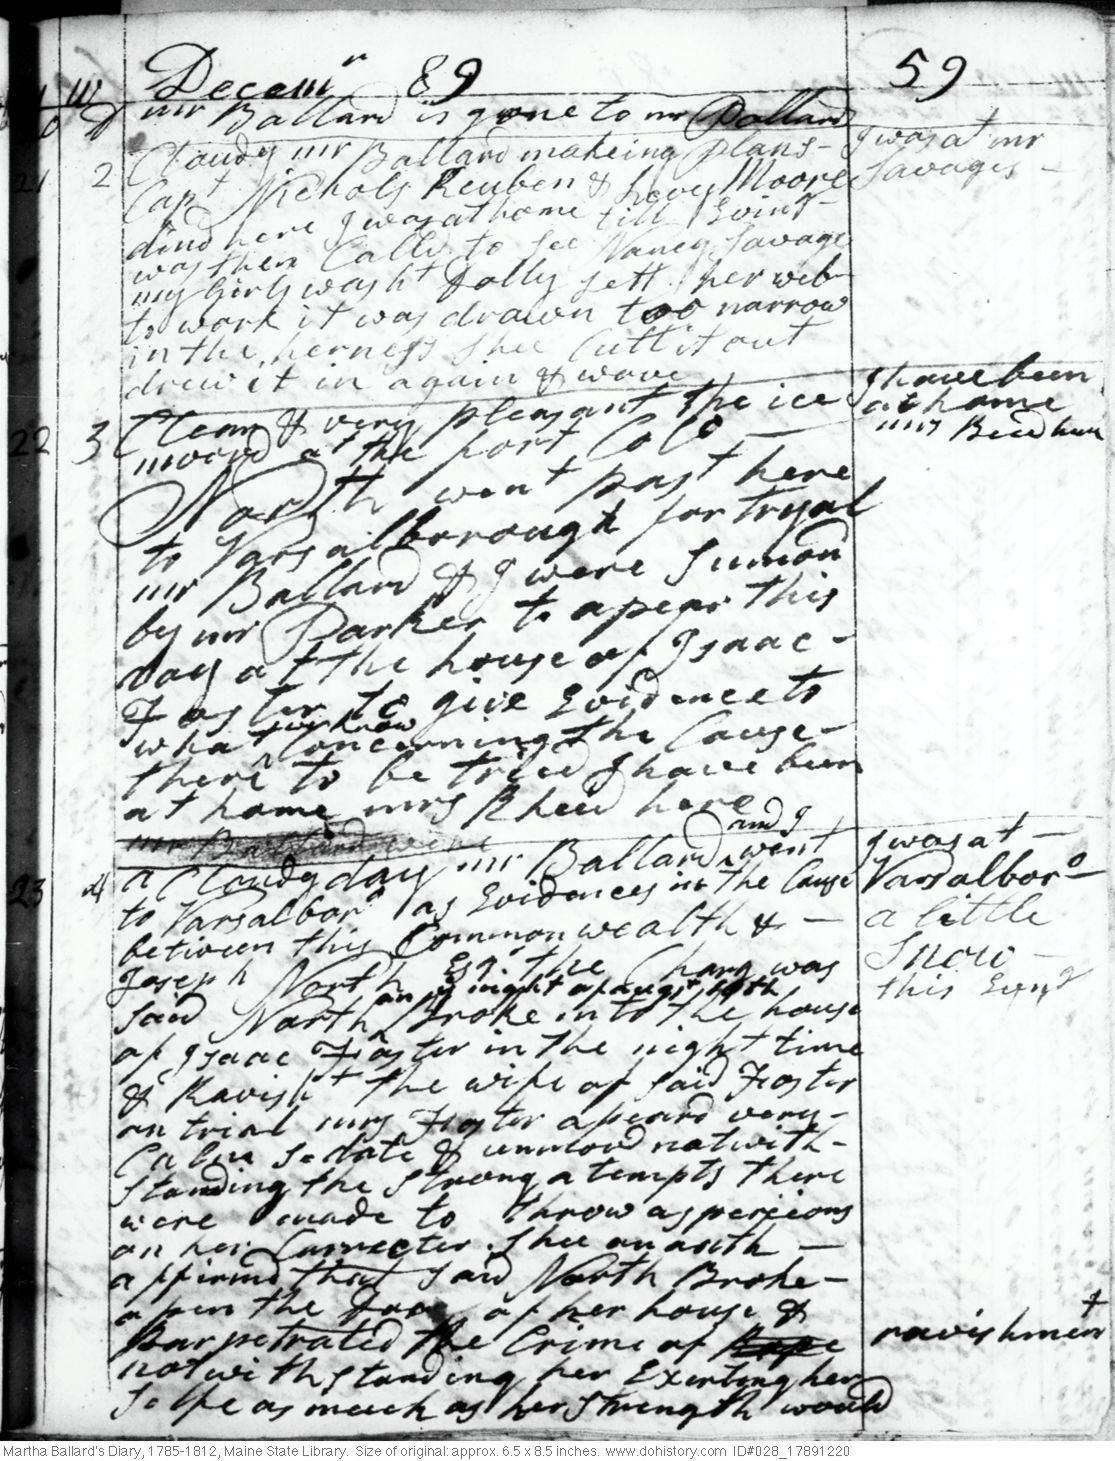 Decemr 89 59
mr Ballard is gone to mr Pollard
21 2 Cloudy mr Ballard makeing plans - I was at mr
Capt Nichols Reuben & Levy Moore Savages -
dind here I was at home till Evining
was then Calld to see Nancy Savage
my Girls washt Dolly sett her web
to work it was drawn too narrow
in the herness shee Cutt it out
drew it in again & wove
22 3 Clear & very pleasant the ice I have been
movd at the port Colo - at home
North went past here mrs Beedham
to Varsalborough for tryal
mr Ballard & I were Sumond
by mr Parker to apear this
day at the house of Isaac -
Foster to give Evidence to
what we know Concerning the Cause -
there to be tried I have been
at home mrs Rheid here
mr Ballard went
23 4 a Cloudy day mr Ballard and I went I was at -
to Varsalboro as Evidences in the Cause Varsalboro -
between this Common wealth & - a little
Joseph North Esq. the Charg was Snow -
said North on ye night of august 10th Broke into the house this Evng
of Isaac Foster in the night time
& Ravisht the wife of said Foster
on trial mrs Foster apeard very -
Calm Sedate & unmovd notwith -
standing the strong atempts there
were made to throw aspercions
on her Carrecter. shee on oath -
affirmd that said North Broke -
open the door of her house &
Parpetrated the Crime of Rape ravishment
notwithstanding her Exerting her
selfe as much as her strength would